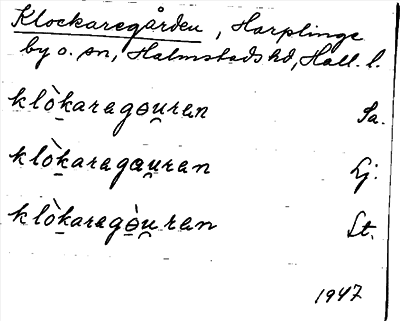 Klockaregården, Harplinge
by o. sn, Halmstads hd, Hall. l.
klò̱karagɵu̯ran Sa.
klò̱karagɑu̯ran Lj.
klò̱karagɵ̀u̯ran St.
1947